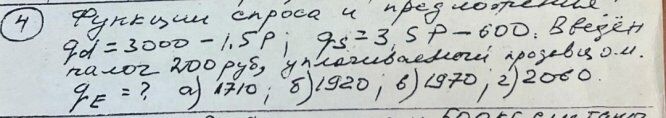 4 Функции спроса и предложения
qd = 3000 - 1,5P; qs = 3,5P - 600. Введён
налог 200 руб, уплачиваемый продавцом.
qE = ? а) 1710; б) 1920; в) 1970; г) 2060.